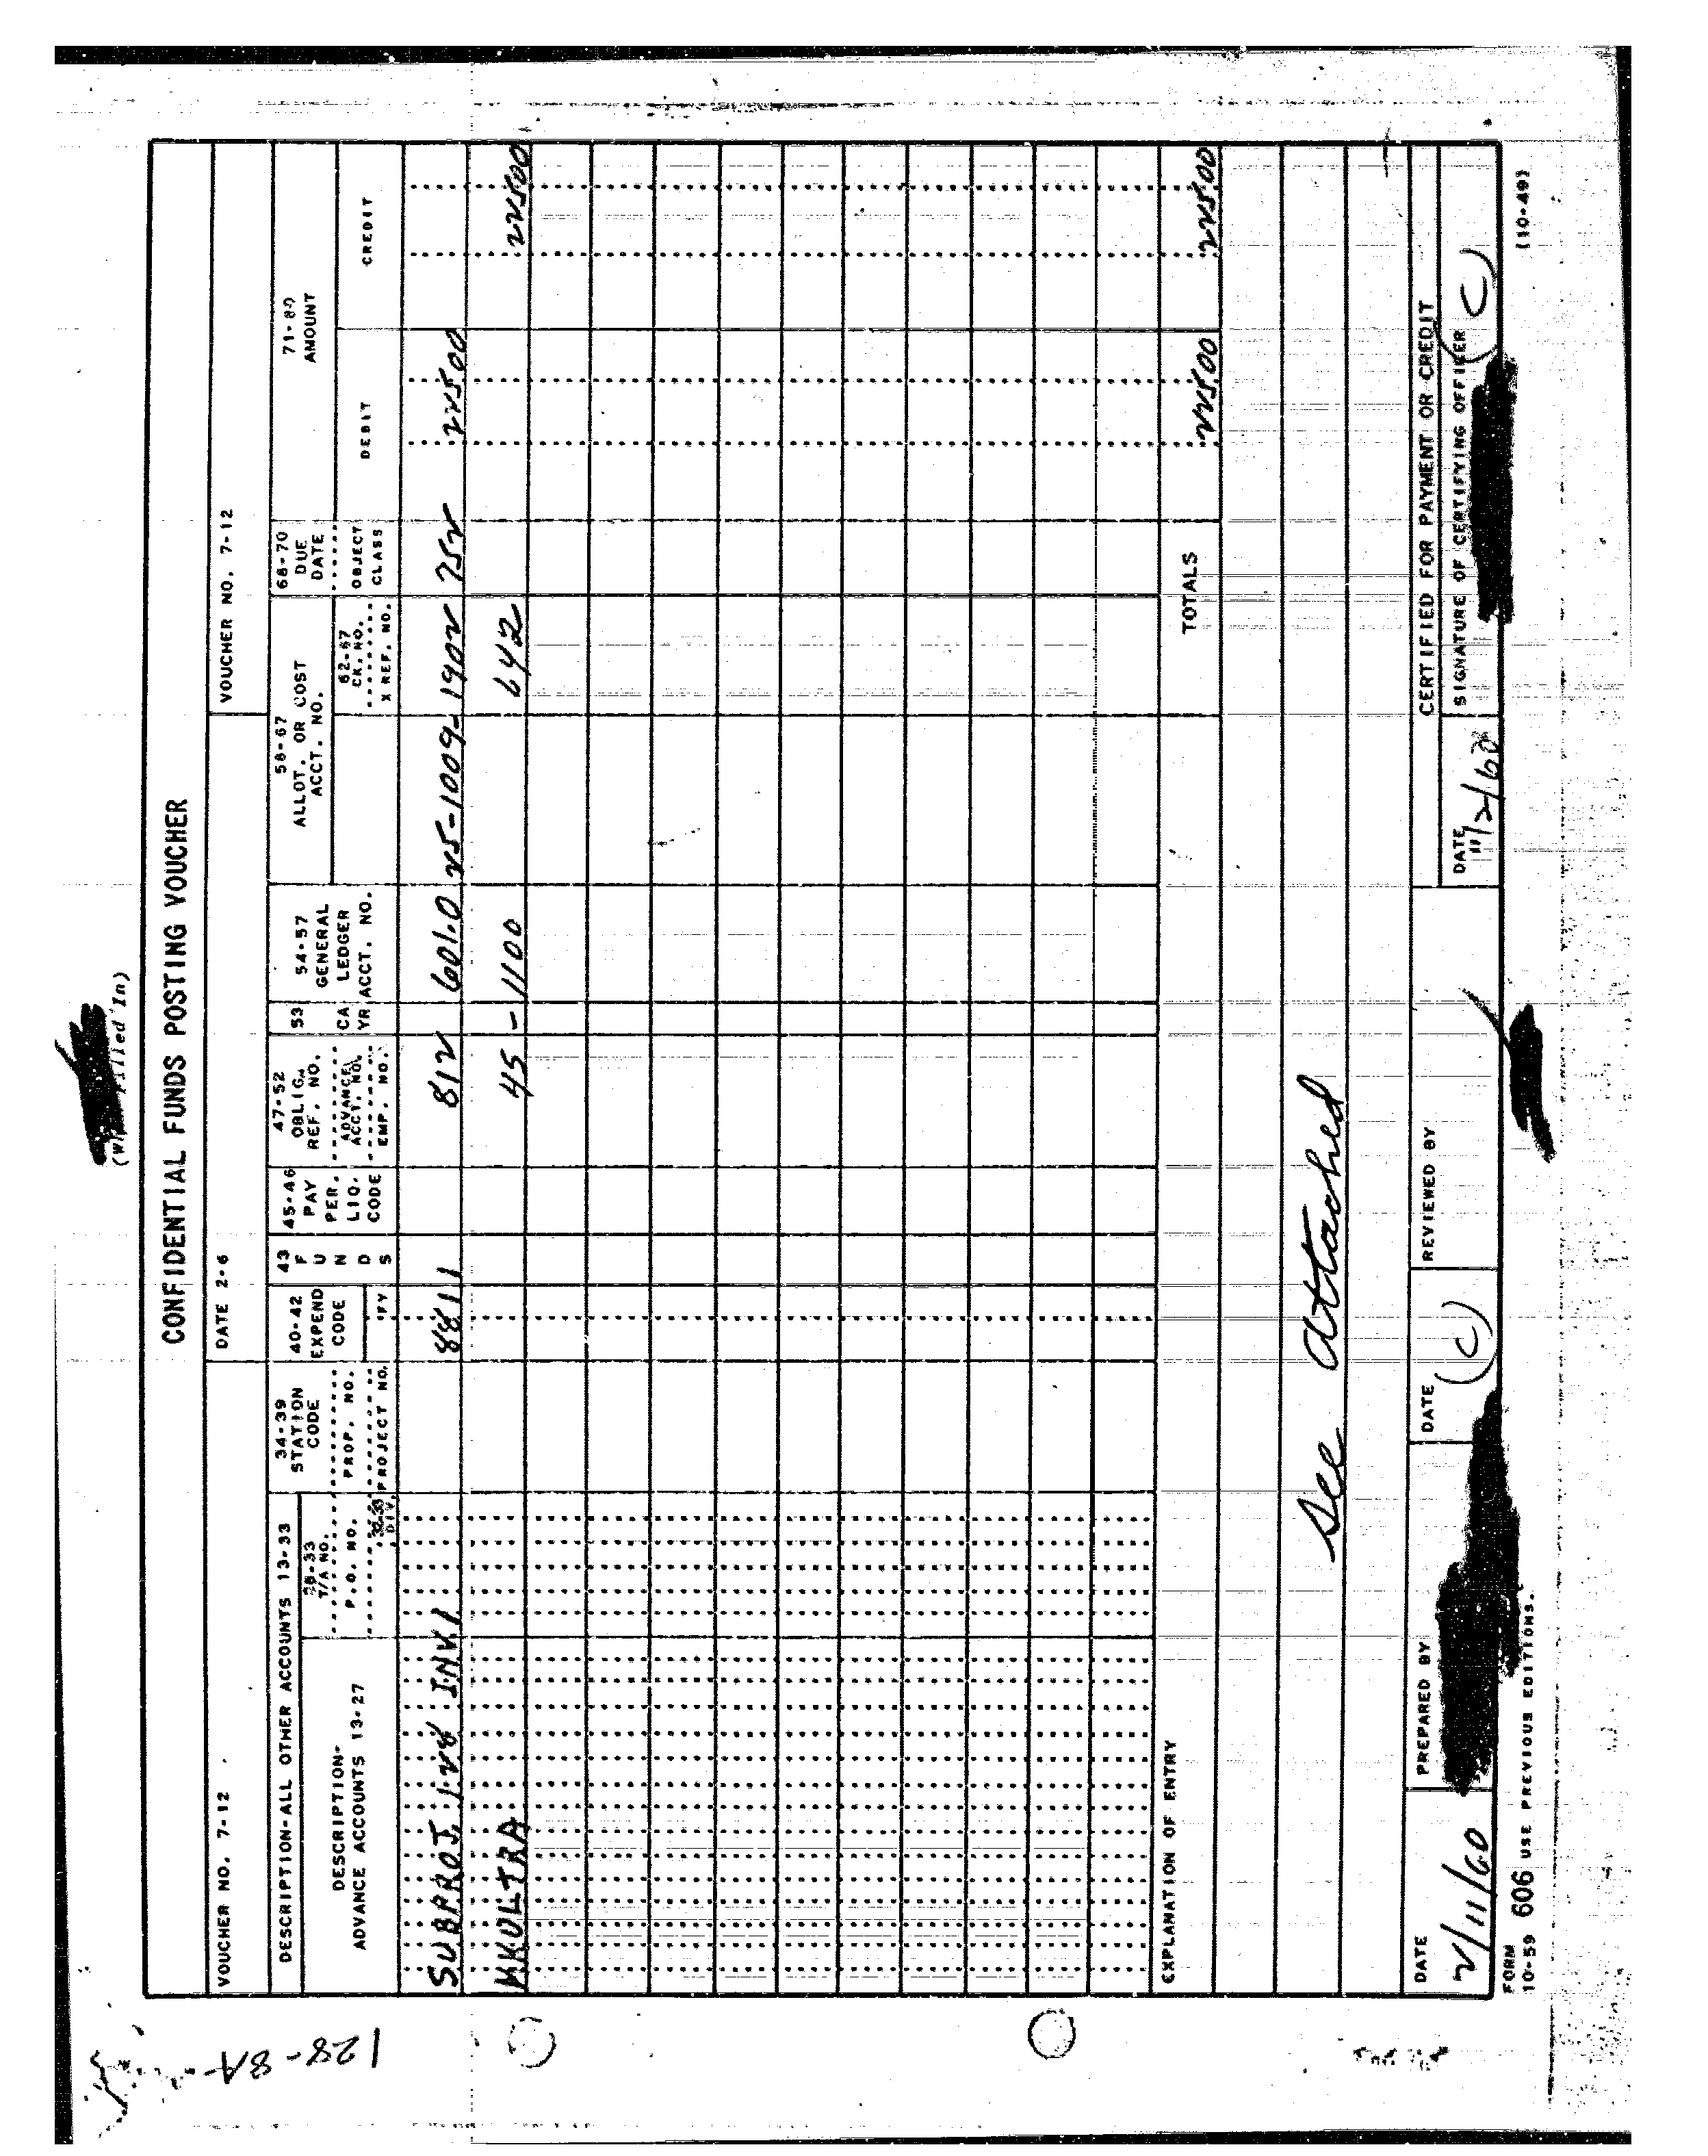 128-8A
(When Filled In)
CONFIDENTIAL FUNDS POSTING VOUCHER
VOUCHER NO. 7-12 DATE 2-6 VOUCHER NO. 7-12
DESCRIPTION-ALL OTHER ACCOUNTS 13-33
DESCRIPTION-
ADVANCE ACCOUNTS 13-27
28-33
T/A NO.
P.O. NO.
32-33
DIV.
34-39
STATION
CODE
PROP. NO.
PROJECT NO.
40-42
EXPEND
CODE
FY
43
F
U
N
D
S
45-46
PAY
PER.
LIQ.
CODE
47-52
OBLIG.
REF. NO.
ADVANCE
ACCT. NO.
EMP. NO.
53
CA
YR
54-57
GENERAL
LEDGER
ACCT. NO.
58-67
ALLOT. OR COST
ACCT. NO.
62-67
CK. NO.
X REF. NO.
68-70
DUE
DATE
OBJECT
CLASS
71-80
AMOUNT
DEBIT CREDIT
SUBPROJ. 128 INV.1 8811 812 601.0 25-1009-1902 752 225.00
MKULTRA 45 - 1100 642 225.00
TOTALS 225.00 225.00
EXPLANATION OF ENTRY
See Attached
CERTIFIED FOR PAYMENT OR CREDIT
DATE PREPARED BY DATE REVIEWED BY DATE SIGNATURE OF CERTIFYING OFFICER
2/11/60 (C) 11/2/60 (C)
FORM
10-59 606 USE PREVIOUS EDITIONS. (10-49)